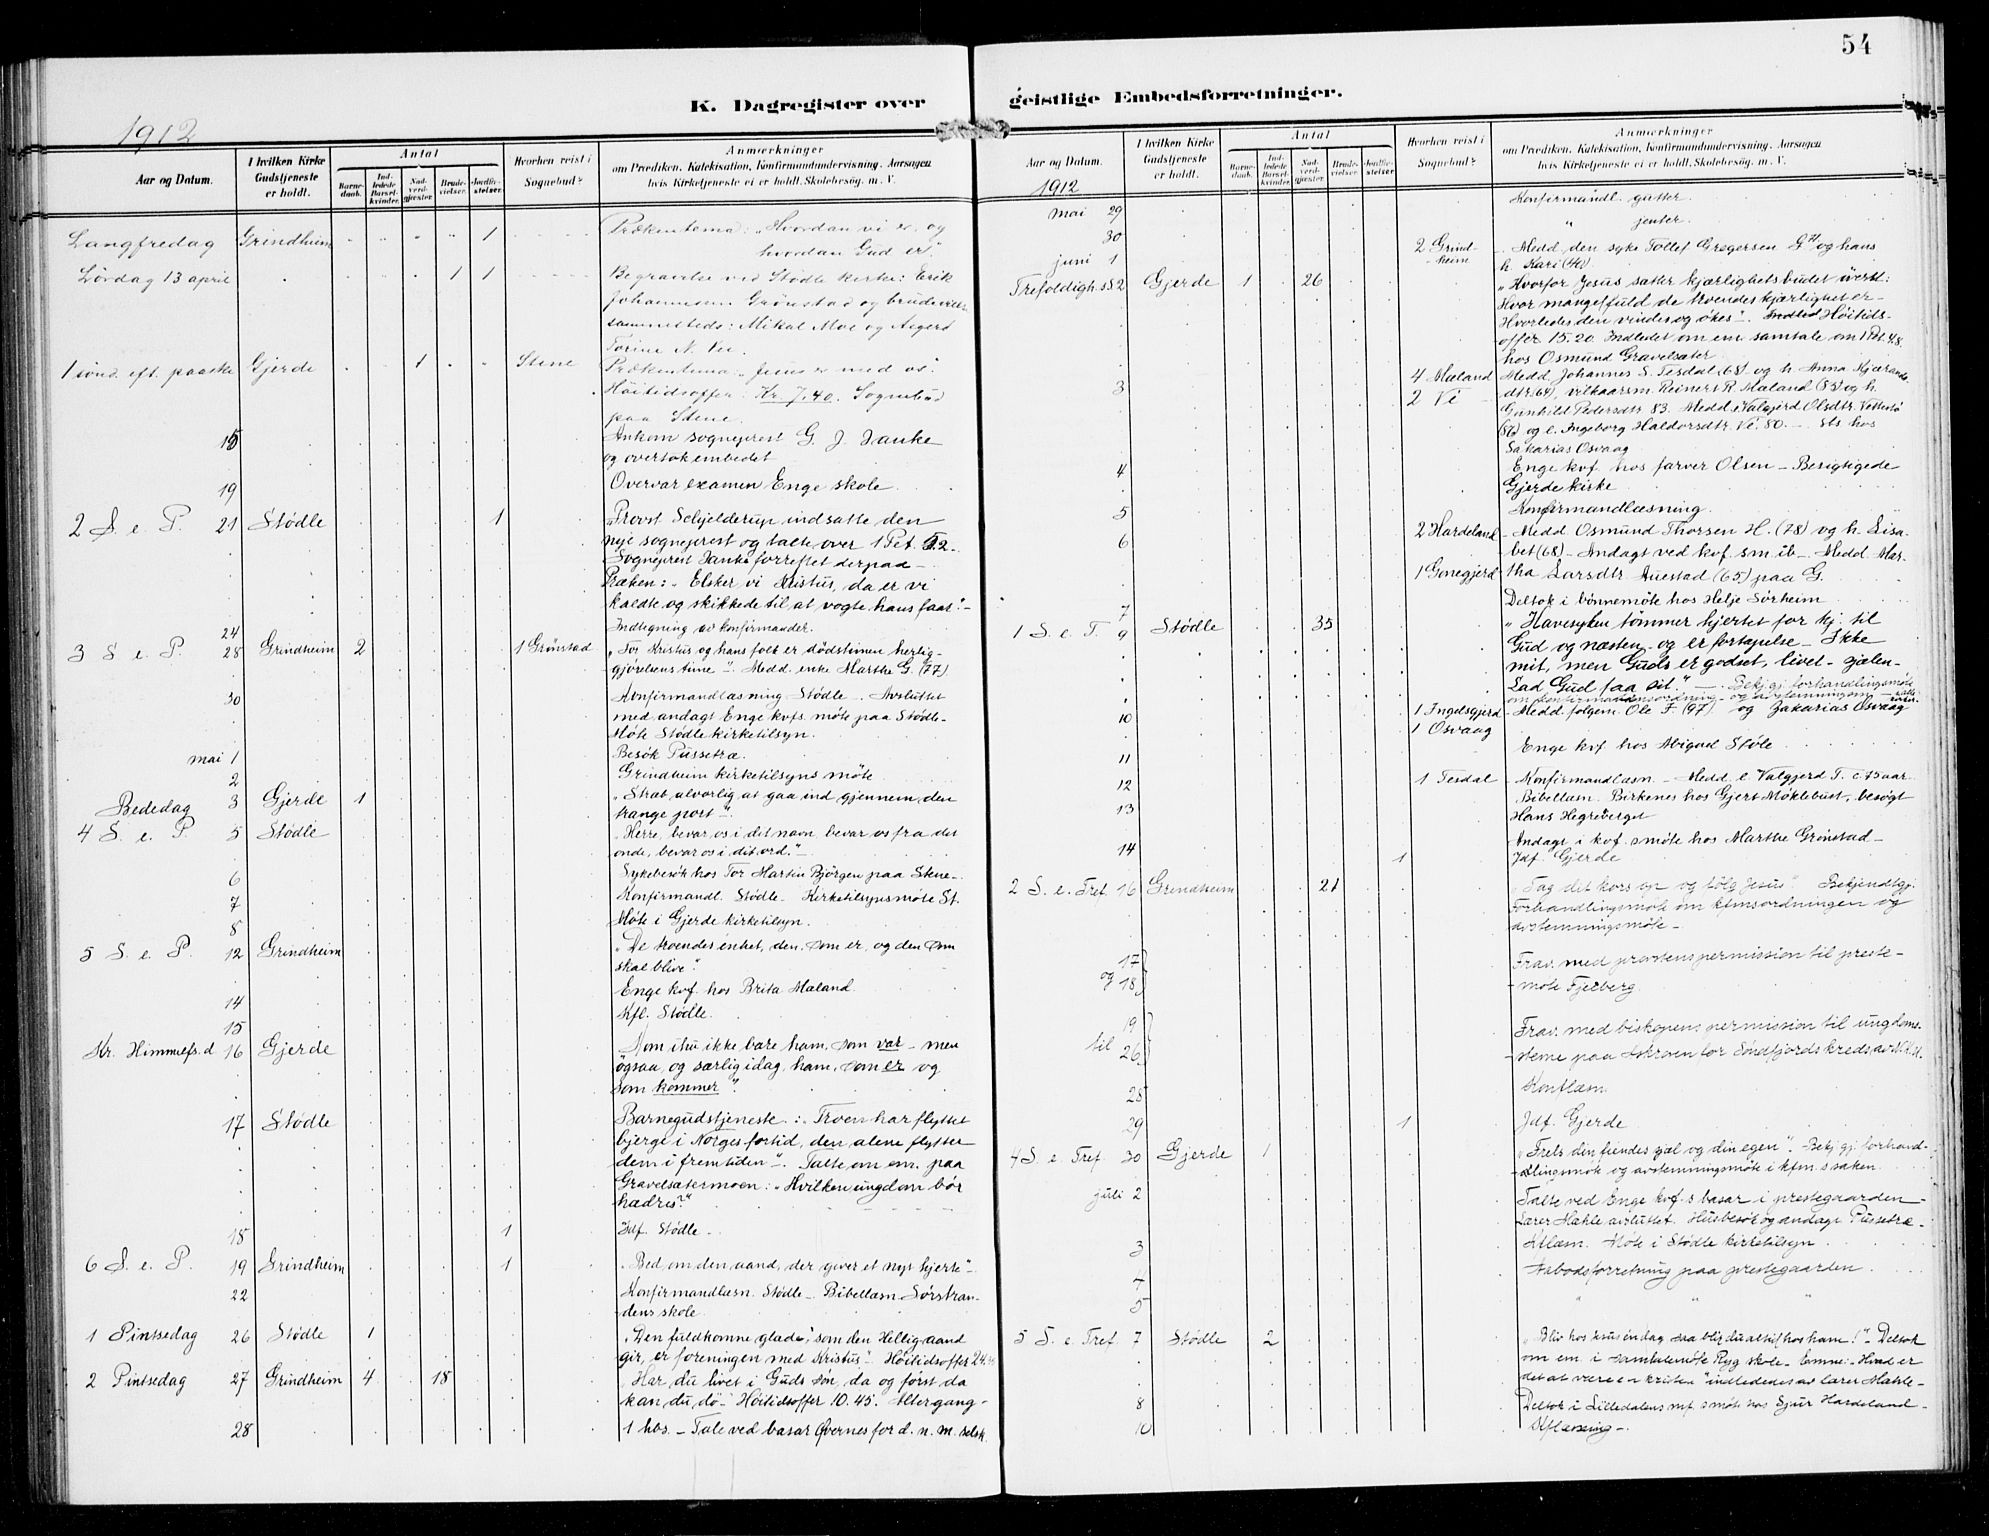 54
K. Dagregister over
geistlige Embedsforretninger.
1912
Aar og Datum.
I hvilken Kirke Gudstjeneste er holdt.
Antal
Barnedaab.
Indledede Barselkvinder.
Nadverdgjæster.
Brudevielser.
Jordfæstelser.
Hvorhen reist i Sognebud?
Anmærkninger
om Prædiken, Katekisation, Konfirmandundervisning. Aarsagen
hvis Kirketjeneste ei er holdt. Skolebesøg. m. V.
Langfredag Grindheim 1 Prækentema: "Hvordan vi er, og
hvordan Gud er".
Lördag 13 april 1 1 Begravelse ved Stödle kirke: Erik
Johannesen Grønstad og brudevielse
sammesteds: Mikal Moe og
Torine N. Vee.
1 sönd. eft. paaske Gjerde 1 Stene Prækentema: "Jesus er med os".
Höitidsoffer: Kr. 7.40. Sognebud
paa Stene.
15 Ankom sogneprest G. J. Janke
og overtok embedet
19 Overvar examen Enge skole
2 S. e. P. 21 Stödle 1 Provst Schjelderup indsatte den
nye sogneprest og talte over 1 Pet. 5.2
Sogneprest Janke forrettet derpaa
Præken: "Elsker vi Kristus, da er vi
kaldte og skikkede til at vogte hans faar".
24 Indtegning av konfirmander.
3 S. e. P. 28 Grindheim 2 1 Grønstad "For Kristus og hans folk er dödstimen herlig-
gjörelsens time". Medd. enke Marthe G. (77)
30 Konfirmandlæsning Stödle. Avsluttet
med andagt Enge kvfs. möte paa Stödle.
Möte Stödle kirketilsyn.
mai 1 Besök Pussetræ.
2 Grindheim kirketilsyns möte
Bededag 3 Gjerde 1 "Stræb alvorlig at gaa ind gjennem den
trange port".
4 S. e. P. 5 Stödle "Herre, bevar os i dit navn, bevar os fra det
onde, bevar os i dit ord."
6 Sykebesök hos Tor Martin Björgen paa Stene.
7 Konfirmandl. Stödle. Kirketilsynsmöte St.
8 Möte i Gjerde kirketilsyn.
5 S. e. P. 12 Grindheim "De troendes enhet, den, som er, og den som
skal blive".
14 Enge kvf. hos Brita Mæland
15 Kfl. Stödle.
Kr. Himmelfs. d 16 Gjerde "Kom ihu ikke bare ham, som var - men
ogsaa, og særlig idag, ham, som er og
som kommer".
17 Stödle Barnegudstjeneste: "Troen har flyttet
bjerge i Norges fortid, den alene flytter
dem i fremtiden". Talte om em. paa
Gravelsætermoen: "Hvilken ungdom bör
hædres?"
18 1 Jdf. Stödle.
6 S. e. P. 19 Grindheim 1 "Bed om den aand, der giver et nyt hjerte".
22 Konfirmandlæsn. Stödle. Bibellæsn. Sörstran-
dens skole.
1 Pintsedag 26 Stödle 1 "Den fuldkomne glæde", som den Hellig aand
gir, er foreningen med Kristus". Höitidsoffer 24.
2 Pintsedag 27 Grindheim 4 18 "Har du livet i Guds sön, da og först da
kan du dö". Höitidsoffer 10.45. Altergang
28 1 hbs. - Tale ved basar Övernes for d. n. m. selsk.
Aar og Datum.
1912
I hvilken Kirke Gudstjeneste er holdt.
Antal
Barnedaab.
Indledede Barselkvinder.
Nadverdgjæster.
Brudevielser.
Jordfæstelser.
Hvorhen reist i Sognebud?
Anmærkninger
om Prædiken, Katekisation, Konfirmandundervisning. Aarsagen
hvis Kirketjeneste ei er holdt. Skolebesøg. m. V.
mai 29 Konfirmandl. gutter.
30 " jenter.
juni 1 2 Grindheim Medd. den syke Tollef Gregersen G. og hans
h. Kari
Trefoldigh. s 2 Gjerde 1 26 "Hvorfor Jesus sætter kjærlighetsbudet överst:
Hvor mangefuld de troendes kjærlighet er -
Hvorledes den vindes og økes". Höitids-
offer 15.20. Indledet om em. samtale om 1 Pet. 4.8.
hos Osmund Gravelsæter
3 4 Mæland Medd. Johannes S. Tesdal (68) og h. Anna Kjærands-
2 Vé dtr. (64), vilkaarsm. Reinert R. Mæland (83) og h.
Gunhild Pedersdtr 83. Medd. Valgjerd Olsdtr. Vettestö
(86) og e. Ingeborg Haldorsdtr. Vé. 80. Sts hos
Sakarias Osvaag
4 Enge kvf. hos farver Olsen - Besigtigede
Gjerde kirke
5 Konfirmandlæsning.
6 2 Hardeland Medd. Osmund Thorsen H. (78) og h. Lisa-
bet (68) - Andagt ved kvf. sm ib - Medd. Mar-
1 Gonegjerd tha Larsdtr Auestad (65) paa G.
7 Deltok i bönnemöte hos Helje Sörheim
1 S. e. T. 9 Stödle 35 "Havesyken tömmer hjertet for kj. til
Gud og næsten - og er fortapelse - Ikke
mit, men Guds er godset, livet - sjælen -
Lad Gud faa sit." - Bekj. gj. forhandlingsmöte
om konfirmandordning - og avstemningsm.
10 1 Ingelsgjerd Medd. fölgem. Ole F. (97) og Zakarias Osvaag
1 Osvaag
11 Enge kvf. hos Abigael Stöle
12 1 Tesdal Konfirmandlæsn. - Medd. e. Valgjerd T. c 75 aar
13 Bibellæsn. Birkenes hos Gjert Möklebust, besögt
Hans Hegreberget
14 Andagt i kvf. s möte hos Marthe Grönstad -
1 Jdf. Gjerde
2 S. e. Tref 16 Grindheim 21 "Tag dit kors op og fölg Jesus". Bekjendtgj.
Forhandlingsmöte om kfmsordningen og
avstemningsmöte -
17 og 18 Frav. med provstens permission til preste-
möte Fjelberg.
19 til 26 Frav. med biskopens permission til ungdoms-
stevne paa Askroen for Söndfjords kreds av
28 Konflæsn
29 1 Jdf. Gjerde
4 S. e. Tref. 30 Gjerde 1 "Frels din fiendes sjæl og din egen". Bekj. gj. forhand-
lingsmöte og avstemningsmöte i kfm. s saken
juli 2 Talte ved Enge kvf. s basar i prestegaarden -
Lærer Mæhle avsluttet. Husbesök og andagt Pussetræ.
3 Kflæsn. Möte i Stödle kirketilsyn
4 Aabodsforretning paa prestegaarden
5 " "
5 S. e. Tref. 7 Stödle 2 "Bliv hos Jesus én dag saa blir du altid hos ham!" - Deltok
om em. i samtalemöte Ryg skole. Emne: - Hvad er
det at være en kristen" indlededes av lærer Mæhle -
8 Deltok i Lilledalens mf. s möte hos Sjur Hardeland -
10 Kflæsning -.